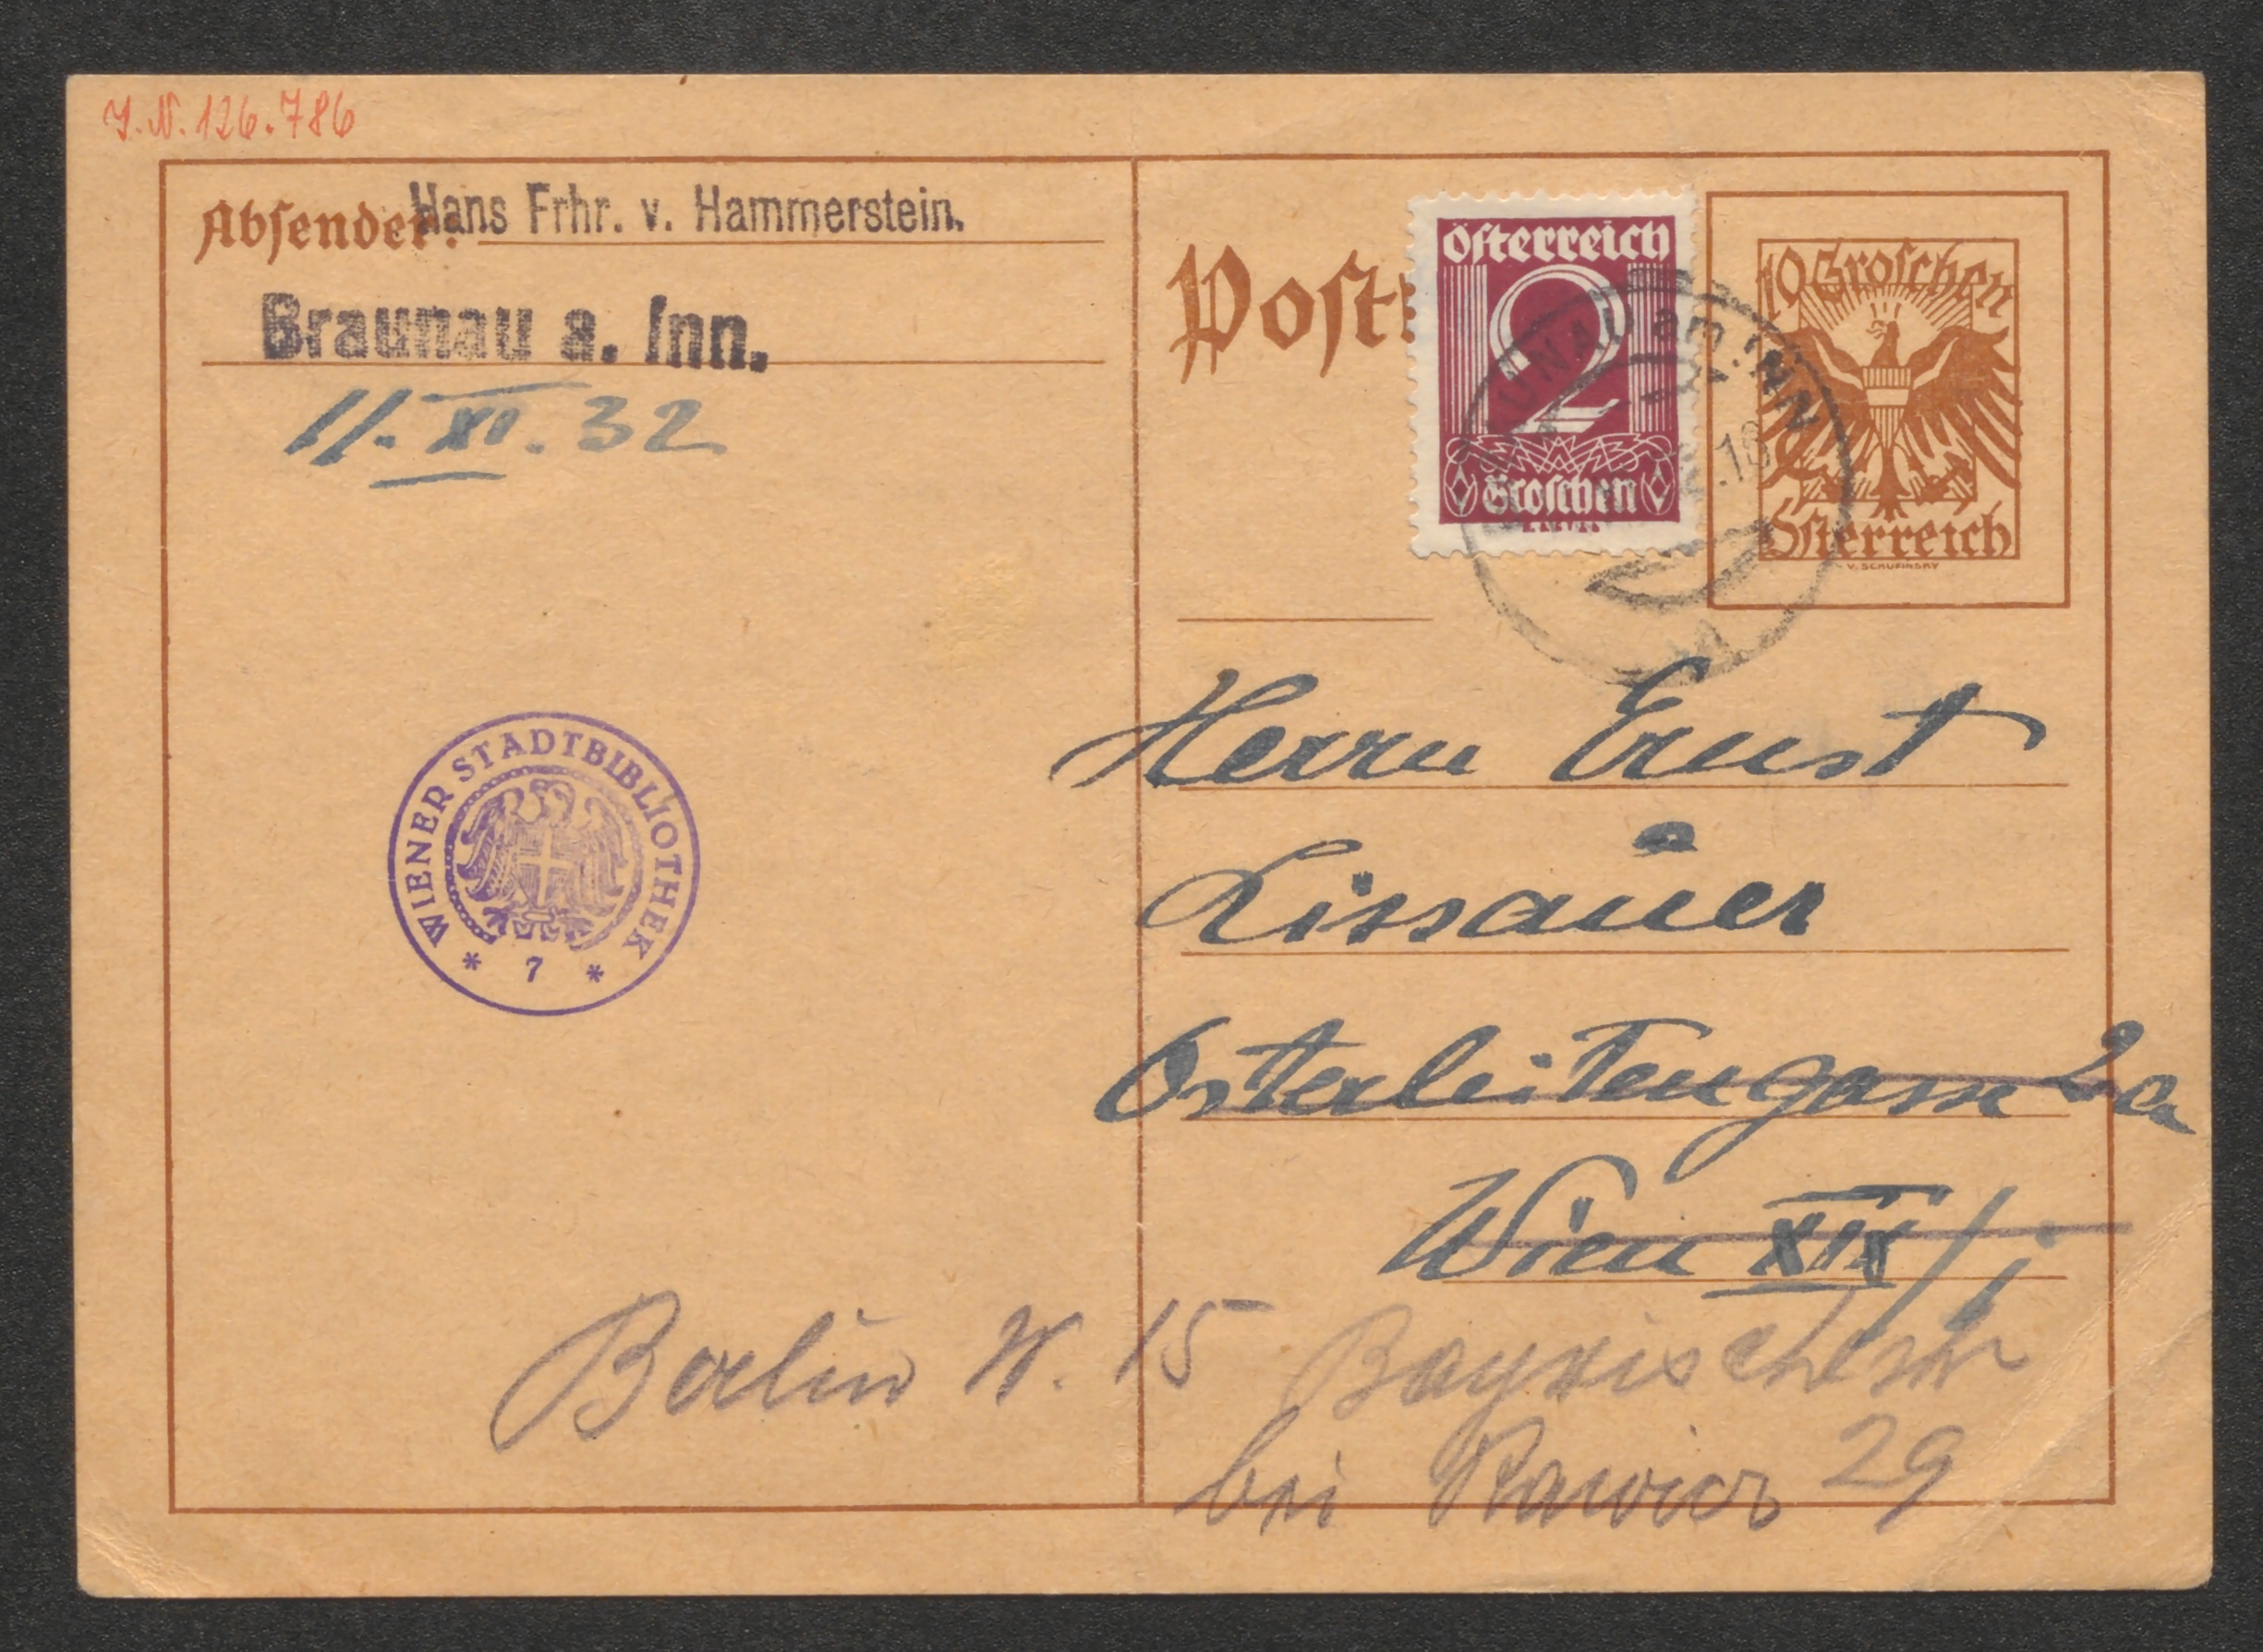 J.N. 126.786
Absender:
Hans Frhr. v. Hammerstein.
Braunau a. Inn.
11. XI. 32
Post
Österreich
2
Groschen
10 Groschen
Österreich
V. SCHUFINSKY
UNAU am INN
WIENER STADTBIBLIOTHEK
* 7 *
Herrn Ernst
Lissauer
Osterleitengasse 2a
Wien XIX/1
Berlin W. 15 Bayrischestr
bei Rawicz 29